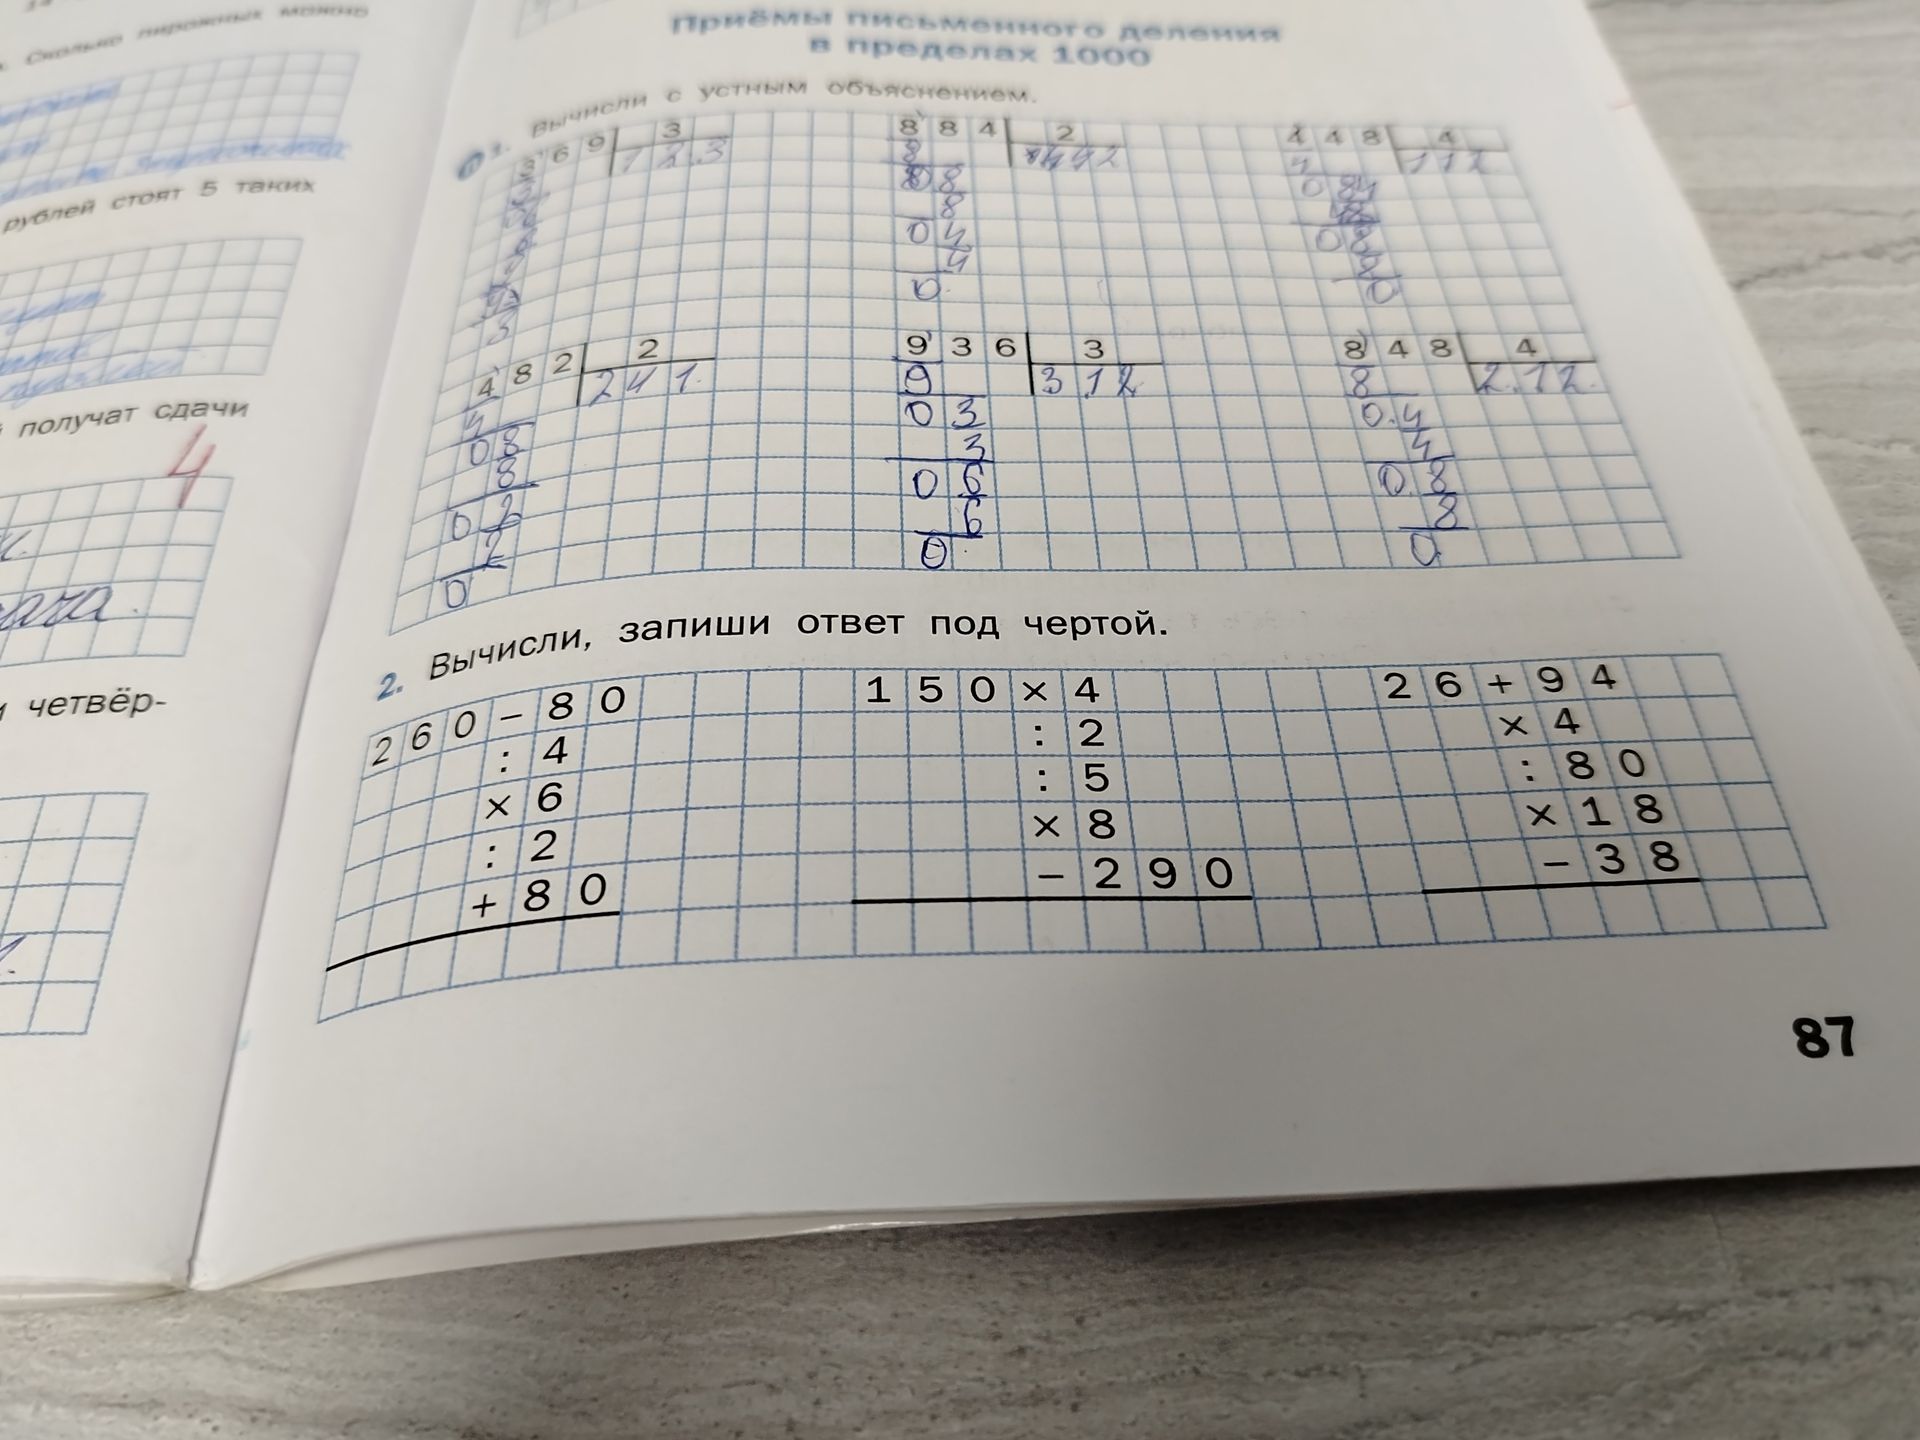 Сколько пирожных можно
рублей стоят 5 таких
получат сдачи
4
четвёр-
Приёмы письменного деления
в пределах 1000
1. Вычисли с устным объяснением.
369 3
123
884 2
442
8
08
8
04
4
0
448 4
112
4
0
482 2
241
4
08
8
02
2
0
936 3
312
9
03
3
06
6
0
848 4
212
8
04
4
08
8
0
2. Вычисли, запиши ответ под чертой.
260-80
: 4
× 6
: 2
+ 80
150×4
: 2
: 5
× 8
- 290
26+94
× 4
: 80
× 18
- 38
87